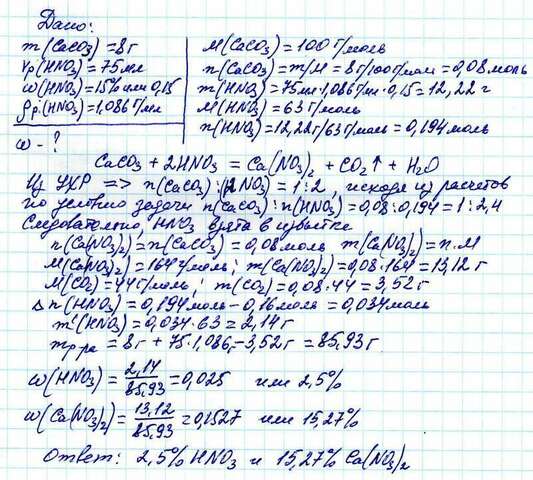 Дано:
m(CaCO₃)=8г
Vр.(HNO₃)=75мл
ω(HNO₃)=15% или 0,15
ρр.(HNO₃)=1,086г/мл
ω-?
M(CaCO₃)=100г/моль
n(CaCO₃)=m/M=8г/100г/моль=0,08моль
m(HNO₃)=75мл·1,086г/мл·0,15=12,22г
M(HNO₃)=63г/моль
n(HNO₃)=12,22г/63г/моль=0,194моль
CaCO₃+2HNO₃=Ca(NO₃)₂+CO₂↑+H₂O
Из УХР => n(CaCO₃):(HNO₃)=1:2, исходя из расчетов
по условию задачи n(CaCO₃):n(HNO₃)=0,08:0,194=1:2,4
Следовательно, HNO₃ взята в избытке
n(Ca(NO₃)₂)=n(CaCO₃)=0,08моль m(Ca(NO₃)₂)=n·M
M(Ca(NO₃)₂)=164г/моль; m(Ca(NO₃)₂)=0,08·164=13,12г
M(CO₂)=44г/моль; m(CO₂)=0,08·44=3,52г
Δn(HNO₃)=0,194моль-0,16моль=0,034моль
m'(HNO₃)=0,034·63=2,14г
mр-ра=8г+75·1,086-3,52г=85,93г
ω(HNO₃)=2,14/85,93=0,025 или 2,5%
ω(Ca(NO₃)₂)=13,12/85,93=0,1527 или 15,27%
Ответ: 2,5% HNO₃ и 15,27% Ca(NO₃)₂